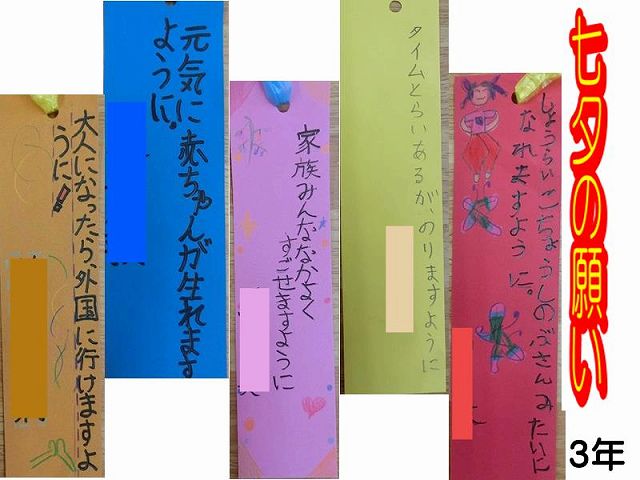 七夕の願い
3年
しょうらいこちょうしのぶさんみたいに
なれますように。
タイムとらいあるが、のりますように
家族みんななかよく
すごせますように
元気に赤ちゃんが生れます
ように。
大人になったら外国に行けますよ
うに!